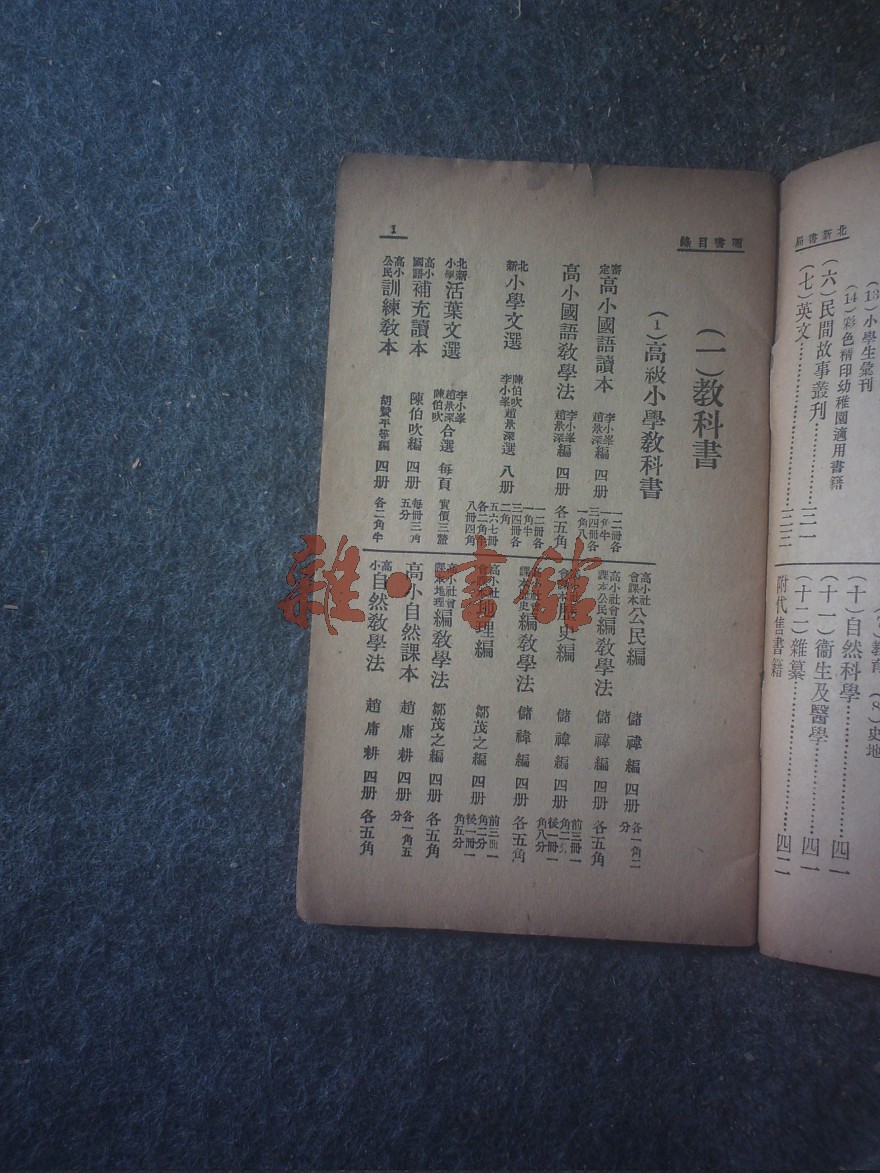 北新書局
(13)小學生彙刊
(14)彩色精印幼稚園適用書籍
(六)民間故事叢刊…………三一
(七)英文…………三三
(十)自然科學…………四一
(十一)衞生及醫學…………四一
(十二)雜纂…………四二
附代售書籍
圖書目錄
1
(一)教科書
(1)高級小學教科書
審定高小國語讀本 李小峯趙景深編 四册 一二冊各一角牛三四冊各一角八
高小國語教學法 李小峯趙景深編 四册 各五角
北新小學文選 陳伯吹李小峯趙景深選 八册 一二冊各一角牛三四冊各二角五六七冊各二角牛八冊四角
北新小學活葉文選 李小峯趙景深陳伯吹合選 每頁實價三釐
高小國語補充讀本 陳伯吹編 四册 每冊三角五分
高小公民訓練教本 胡贊平等編 四册 各二角牛
高小社會課本公民編 儲禕編 四册 各一角二分
高小社會課本公民編教學法 儲禕編 四册 各五角
高小社會課本歷史編 儲禕編 四册 前三冊一角二分後一冊一角八分
高小社會課本歷史編教學法 儲禕編 四册 各五角
高小社會課本地理編 鄒茂之編 四册 前三冊一角二分後一冊一角五分
高小社會課本地理編教學法 鄒茂之編 四册 各五角
高小自然課本 趙庸耕 四册 各一角五分
高小自然教學法 趙庸耕 四册 各五角
雜·書館